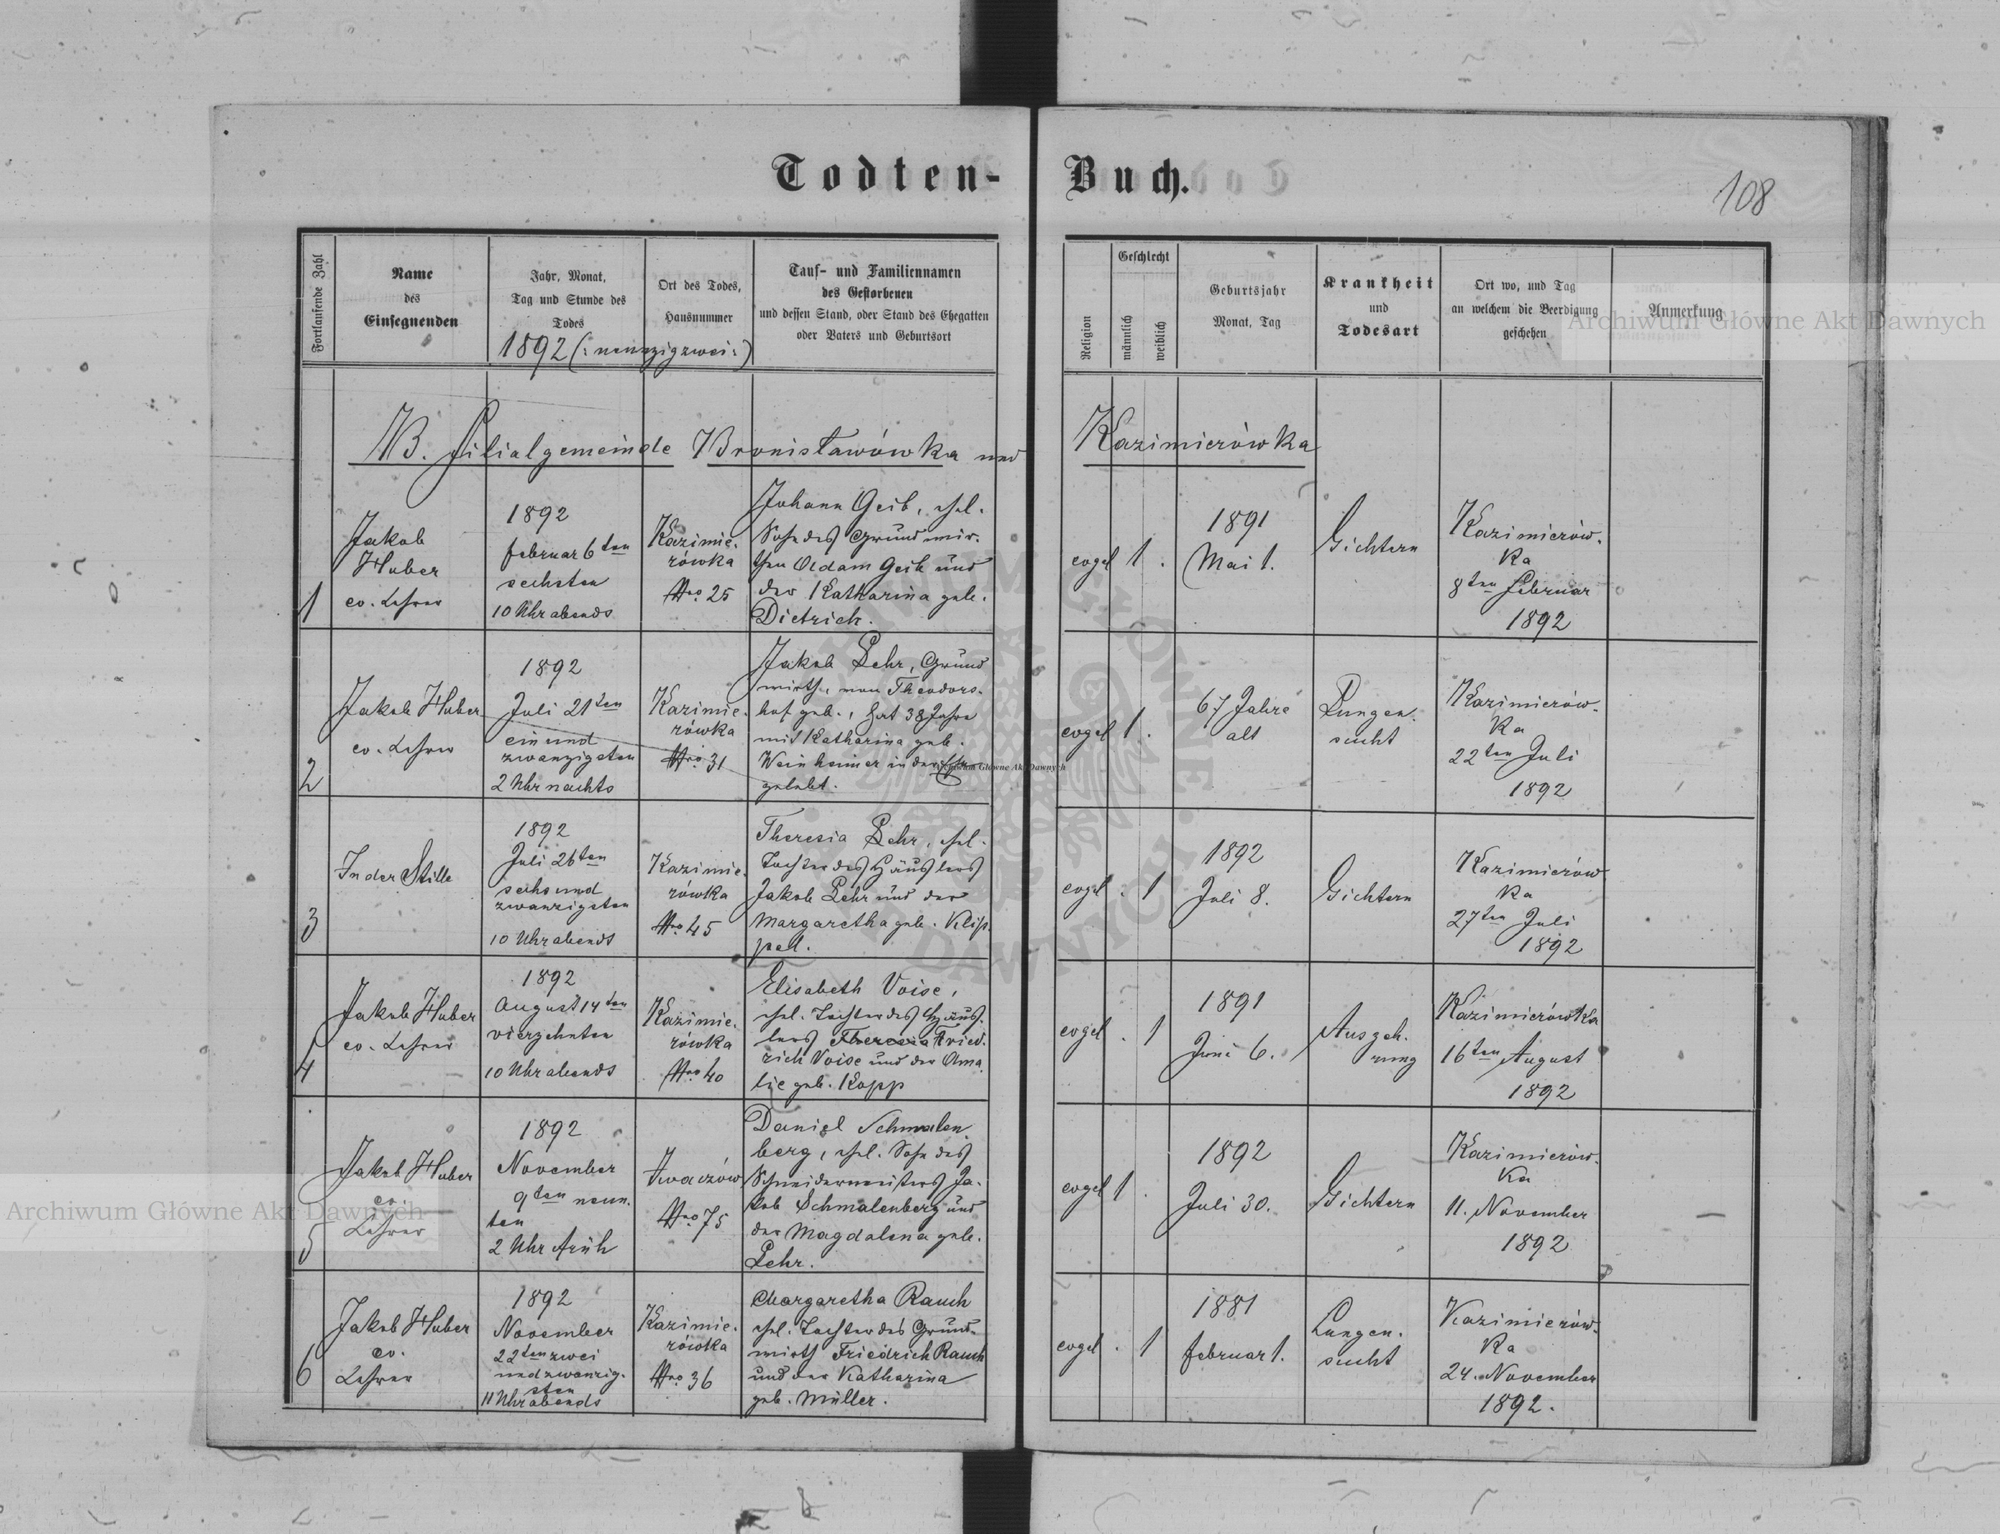 Todten-Buch.
108
Fortlaufende Zahl
Name
des
Einsegnenden
Jahr, Monat,
Tag und Stunde des
Todes
1892 (: neunzigzwei :)
Ort des Todes,
Hausnummer
Tauf- und Familiennamen
des Gestorbenen
und dessen Stand, oder Stand des Ehegatten
oder Vaters und Geburtsort
Religion
Geschlecht
männlich
weiblich
Geburtsjahr
Monat, Tag
Krankheit
und
Todesart
Ort wo, und Tag
an welchem die Beerdigung
geschehen
Anmerkung
B. Filialgemeinde Bronisławówka und Kazimierówka
1
Jakob
Huber
ev. Lehrer
1892
Februar 6ten
sechsten
10 Uhr abends
Kazimie-
rówka
Nro 25
Johann Geib, ehel.
Sohn des Grundwir-
then Adam Geib und
der Katharina geb.
Dietrich.
evgel
1 .
1891
Mai 1.
Gichtern
Kazimierów-
ka
8ten Februar
1892
2
Jakob Huber
ev. Lehrer
1892
Juli 21ten
einund
zwanzigsten
2 Uhr nachts
Kazimie-
rówka
Nro 31
Jakob Lehr, Grund
wirth, von Theodors-
hof geb., hat 38 Jahre
mit Katharina geb.
Weinheimer in der Ehe
gelebt.
evgel
1 .
67 Jahre
alt
Lungen-
sucht
Kazimierów-
ka
22ten Juli
1892
3
In der Stille
1892
Juli 26ten
sechsund
zwanzigsten
10 Uhr abends
Kazimie-
rówka
Nro 45
Theresia Lehr, ehel.
Tochter des Häuslers
Jakob Lehr und der
Margaretha geb. Klip-
pel.
evgel
. 1
1892
Juli 8.
Gichtern
Kazimierów
ka
27ten Juli
1892
4
Jakob Huber
ev. Lehrer
1892
August 14ten
vierzehnten
10 Uhr abends
Kazimie-
rówka
Nro 40
Elisabeth Voise,
ehel. Tochter des Häus-
lers Theresia Fried-
rich Voise und der Ama
lie geb. Kopp
evgel
. 1
1891
Juni 6.
Auszeh-
rung
Kazimierówka
16ten August
1892
5
Jakob Huber
ev.
Lehrer
1892
November
9ten neun-
ten
2 Uhr früh
Iwaczów
Nro 75
Daniel Schmalen
berg, ehel. Sohn des
Schneidermeisters Ja-
kob Schmalenberg und
der Magdalena geb.
Lehr.
evgel
1 .
1892
Juli 30.
Gichtern
Kazimierów-
ka
11. November
1892
6
Jakob Huber
ev.
Lehrer
1892
November
22ten zwei
undzwanzig-
sten
11 Uhr abends
Kazimie-
rówka
Nro 36
Margaretha Rauch
ehel. Tochter des Grund-
wirth Friedrich Rauch
und der Katharina
geb. Müller.
evgel
. 1
1881
Februar 1.
Lungen-
sucht
Kazimierów-
ka
24. November
1892.
Archiwum Główne Akt Dawnych
Archiwum Główne Akt Dawnych
Archiwum Główne Akt Dawnych